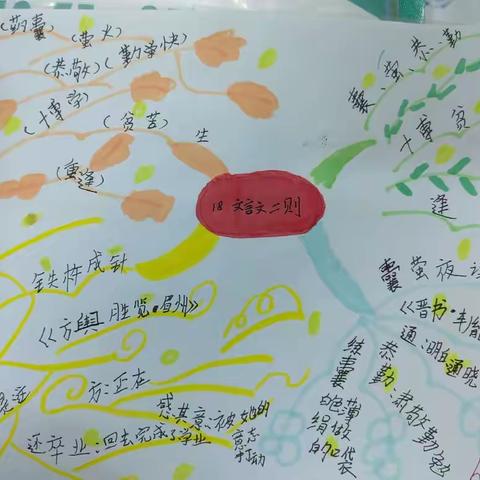 18 文言文二则
(萤火)
(恭敬)
(勤学
(贫苦)
生
恭、勤
囊、萤、
博
贫
逢
铁杵成针
《方舆胜览·眉州》
方:正在
还卒业:回去完成了学业
感其意:被她的
意志
打动
囊萤夜读
《晋书·车胤
通:明白通晓
恭勤:肃敬勤勉
练囊
薄
绢做
的口袋